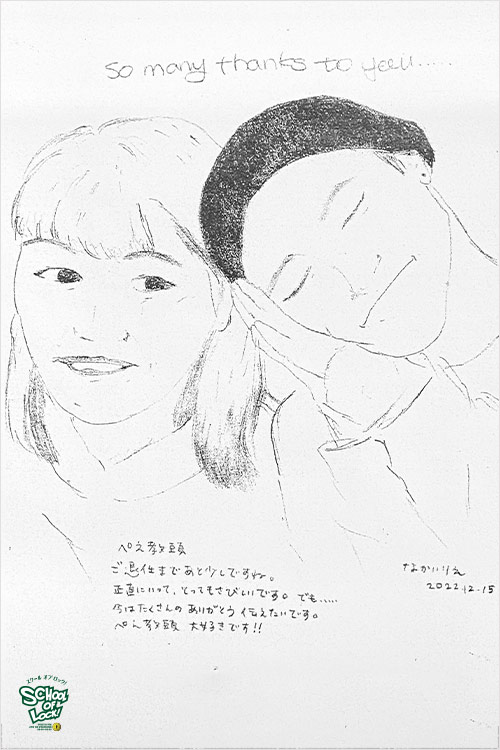 so many thanks to you.....
ぺえ教頭
ご退任まであと少しですね。
正直にいって、とってもさびしいです。でも.....
今はたくさんの ありがとう 伝えたいです。
ぺえ教頭 大好きです!!
なかいりえ
2022.12.15
スクール オブ ロック!
SCHOOL
OF
LOCK!